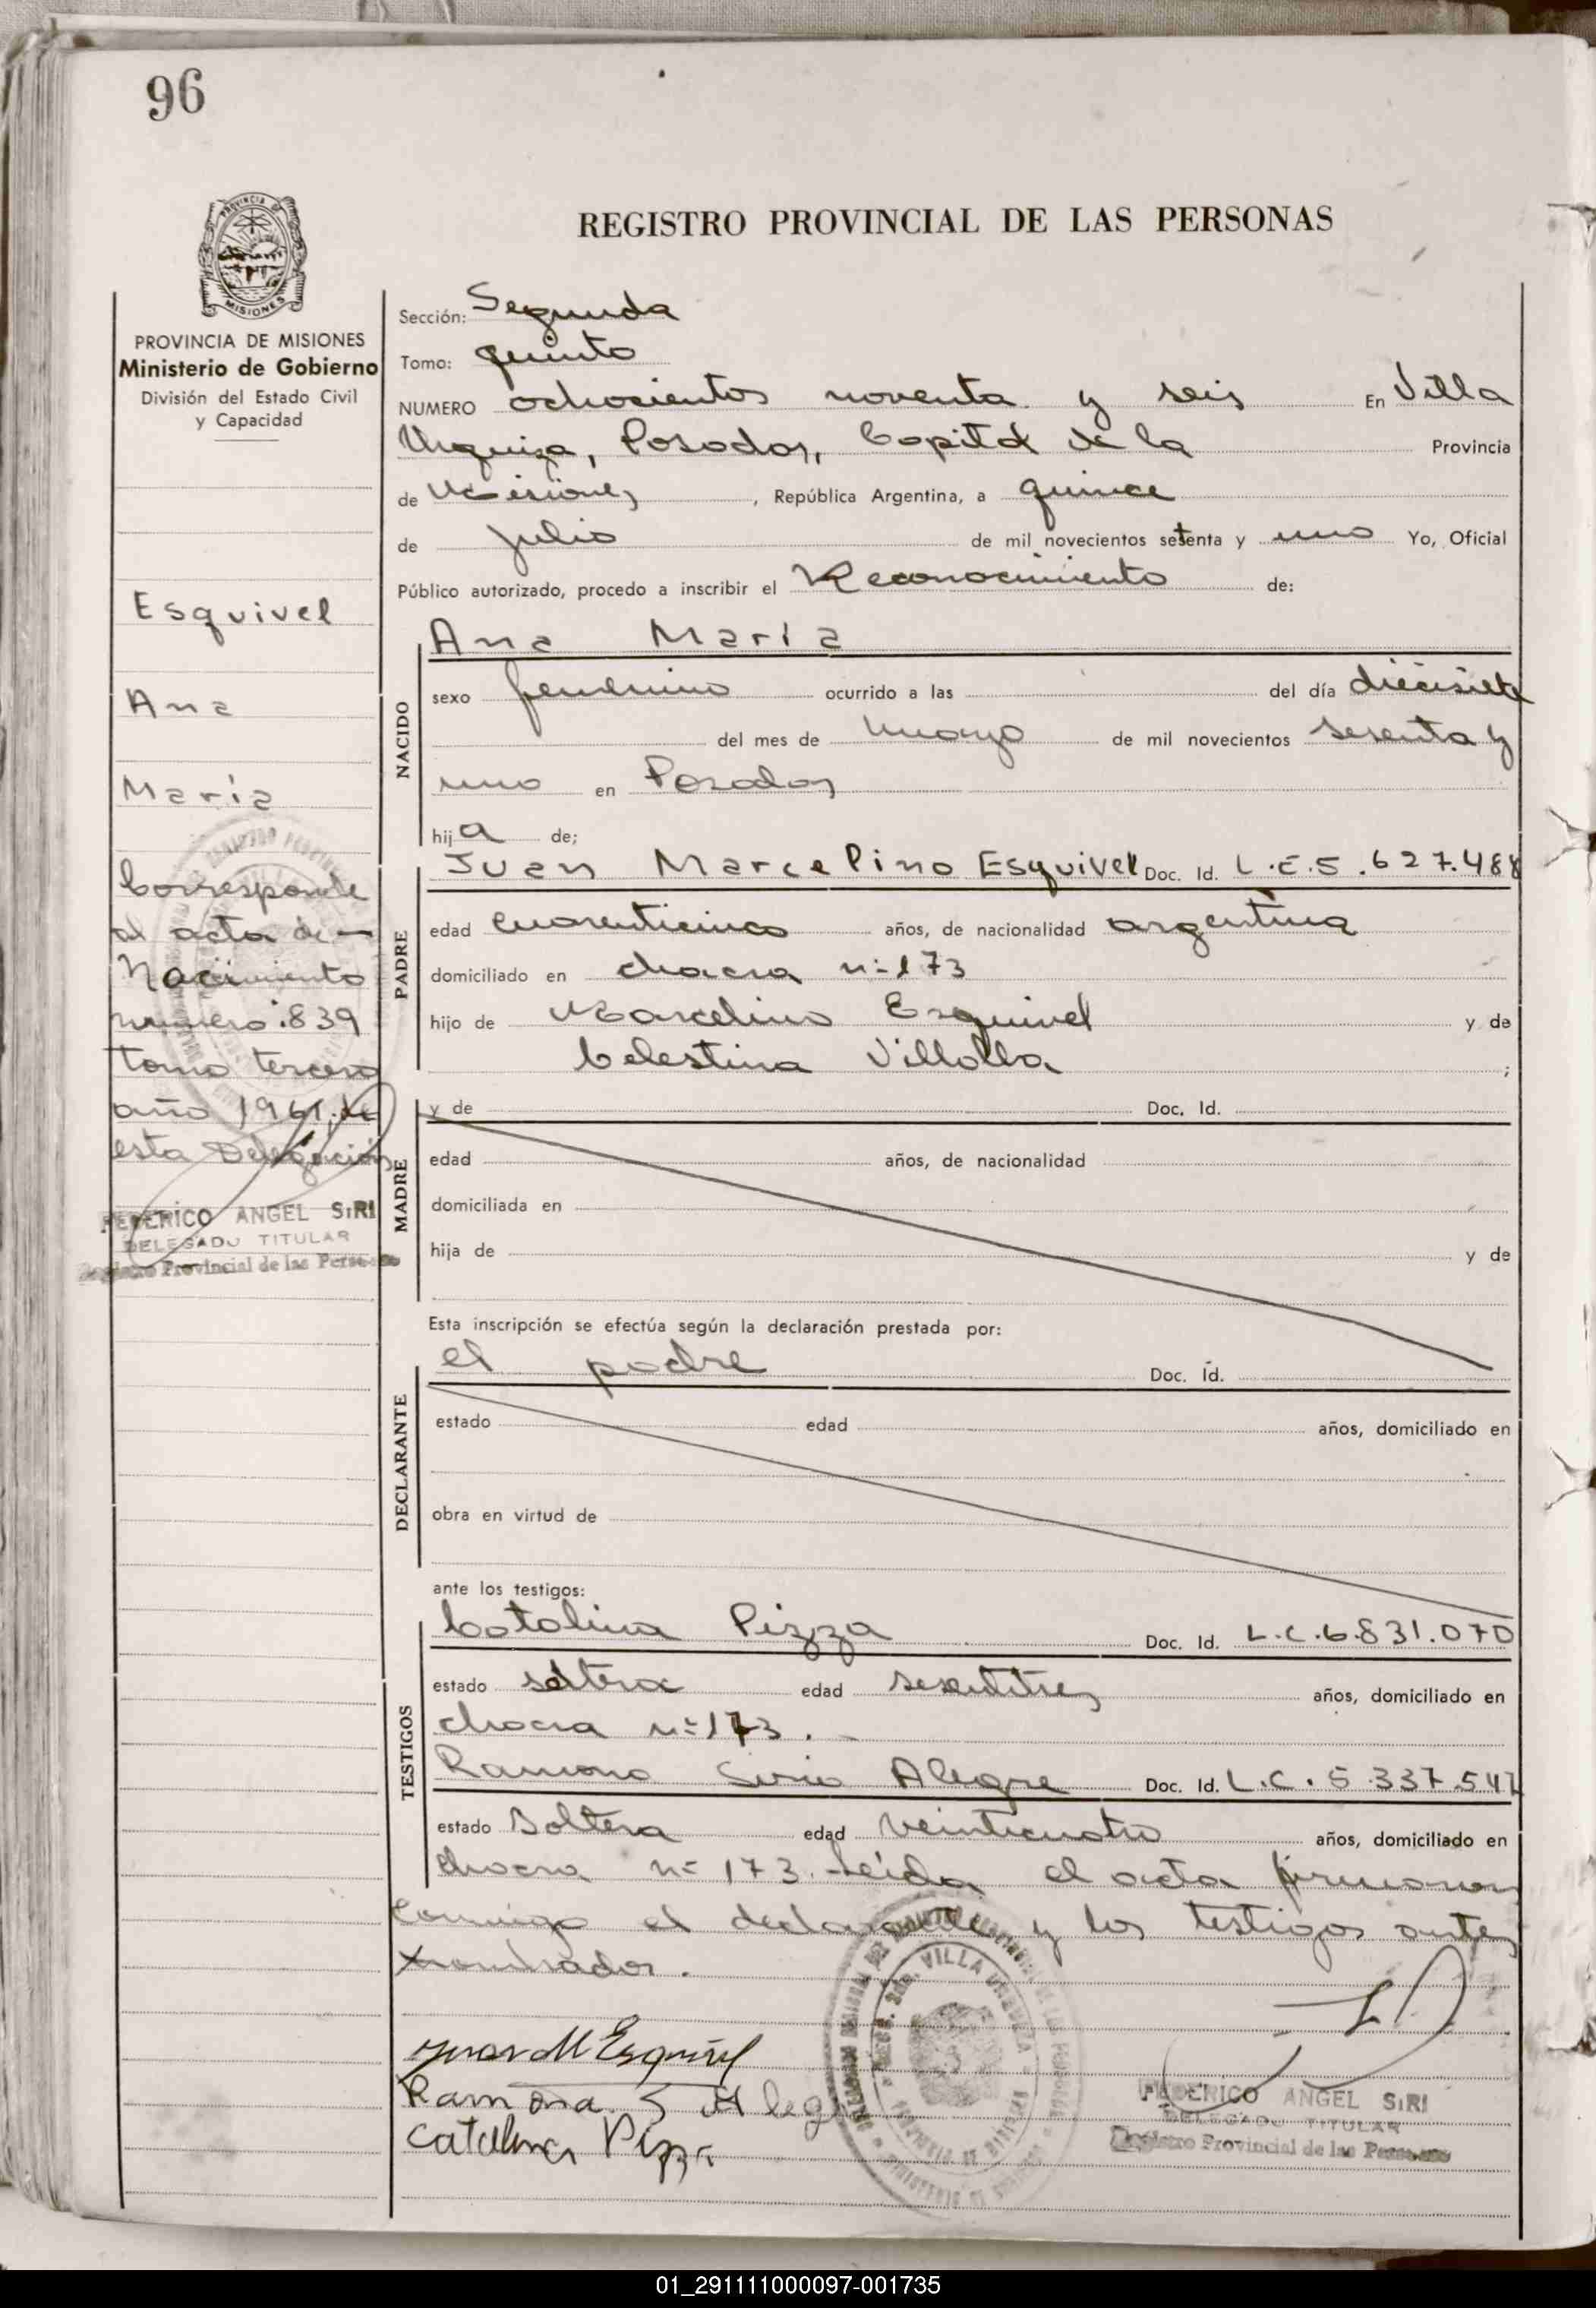 96
PROVINCIA DE MISIONES
Ministerio de Gobierno
División del Estado Civil
y Capacidad
Esquivel
Ana
María
Corresponde
al acta de
Nacimiento
número 839
tomo tercero
año 1961, de
esta Delegación
FEDERICO ANGEL SIRI
DELEGADO TITULAR
Registro Provincial de las Personas
REGISTRO PROVINCIAL DE LAS PERSONAS
Sección: Segunda
Tomo: quinto
NUMERO ochocientos noventa y seis En Villa
Urquiza, Posadas, Capital de la Provincia
de Misiones, República Argentina, a quince
de julio de mil novecientos setenta y uno Yo, Oficial
Público autorizado, procedo a inscribir el Reconocimiento de:
Ana María
NACIDO
sexo femenino ocurrido a las del día diecisiete
del mes de mayo de mil novecientos sesenta y
uno en Posadas
hija de;
PADRE
Juan Marcelino Esquivel Doc. Id. L.E.5.627.488
edad cuarenticinco años, de nacionalidad argentina
domiciliado en chacra nº 173
hijo de Marcelino Esquivel y de
Celestina Villalba ;
MADRE
y de Doc. Id.
edad años, de nacionalidad
domiciliada en
hija de y de
Esta inscripción se efectúa según la declaración prestada por:
DECLARANTE
el padre Doc. Id.
estado edad años, domiciliado en
obra en virtud de
ante los testigos:
TESTIGOS
Catalina Pizza Doc. Id. L.C.6.831.070
estado soltera edad sesentitres años, domiciliado en
chacra nº 173.
Ramona Siria Alegre Doc. Id. L.C.5.337.547
estado soltera edad veinticuatro años, domiciliado en
chacra nº 173. Leída el acta firmaron
conmigo el declarante y los testigos antes
nombrados.
Juan M Esquivel
Ramona S Aleg
Catalina Pizza
VILLA URQUIZA
FEDERICO ANGEL SIRI
DELEGADO TITULAR
Registro Provincial de las Personas
01_291111000097-001735